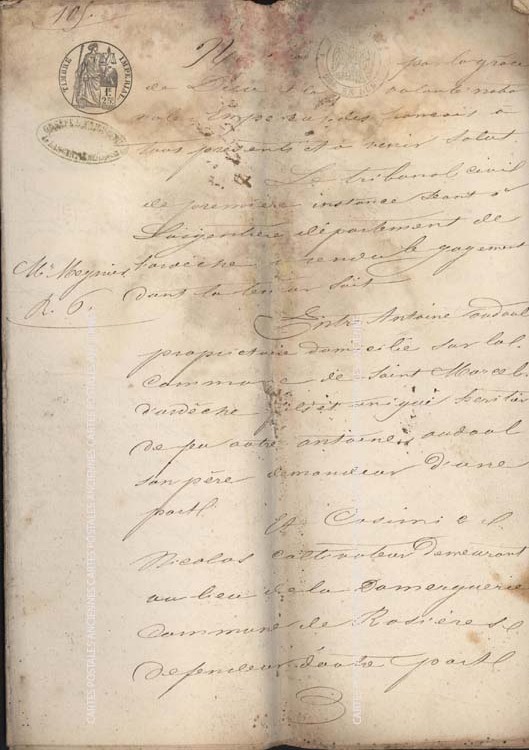 105
TIMBRE IMPERIAL
1F. 25c.
par la grâce
de Dieu et la volonté natio
nale Empereur des francais à
tous présents et à venir salut
Le tribunal civil
de première instance séant à
Largentière département de
l'ardèche a rendu le jugement
dont la teneur suit
Me Meynier
R. G.
Entre Antoine audoul
propriétaire domicilié sur la
commune de Saint Marcel
d'ardèche fils et unique héritier
de feu autre antoine audoul
son père demandeur d'une
part
Et Casimir
Nicolas cultivateur demeurant
au lieu de la Domerguerie
commune de Rosières
défendeur d'autre part
CARTES POSTALES ANCIENNES CARTES POSTALES ANCIENNES